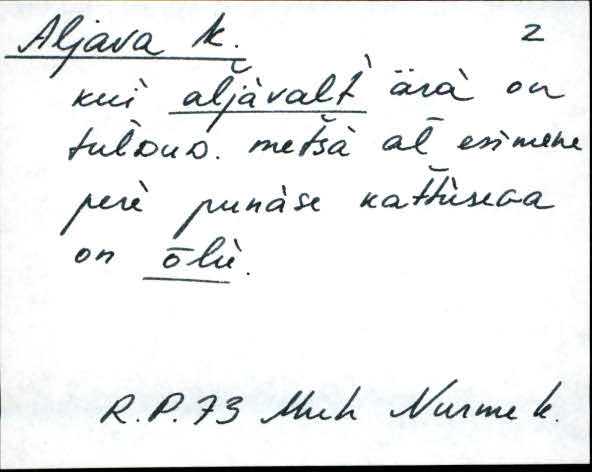 Aljava k. 2
kui al̆jàvalt̀ ärà on
tulᴅuᴅ. met̆sà al̄ esimene
perè punàse kat̆tùsega
on ōlù.
R.P.73 Muh Nurme k.